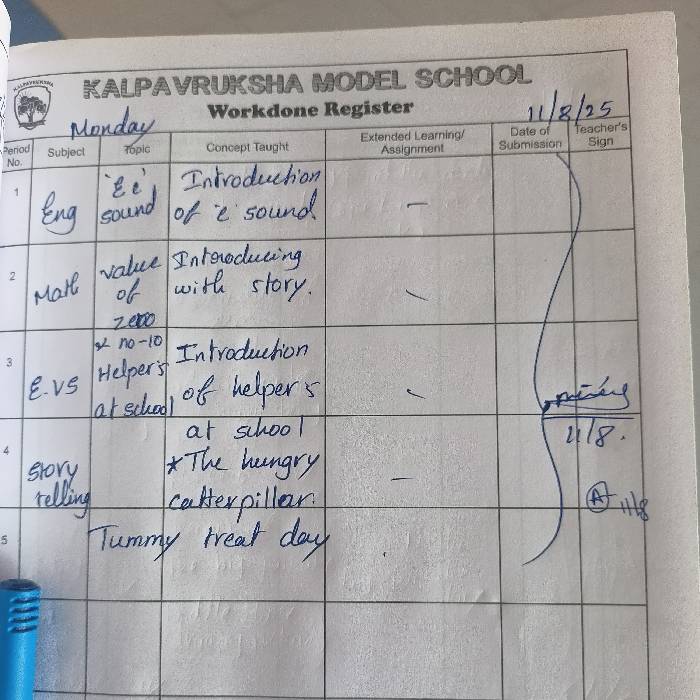 KALPAVRUKSHA
KALPAVRUKSHA MODEL SCHOOL
Workdone Register
Monday
11/8/25
Period No.
Subject
Topic
Concept Taught
Extended Learning/
Assignment
Date of
Submission
Teacher's
Sign
1
Eng
'Ee'
sound
Introduction
of 'e' sound.
-
2
Math
value
of
zero
Introducing
with story.
-
3
E.VS
* no-10
Helper's
at school
Introduction
of helper's
at school
-
4
Story
telling
*The hungry
catterpillar.
-
11/8.
A
11/8
5
Tummy treat day